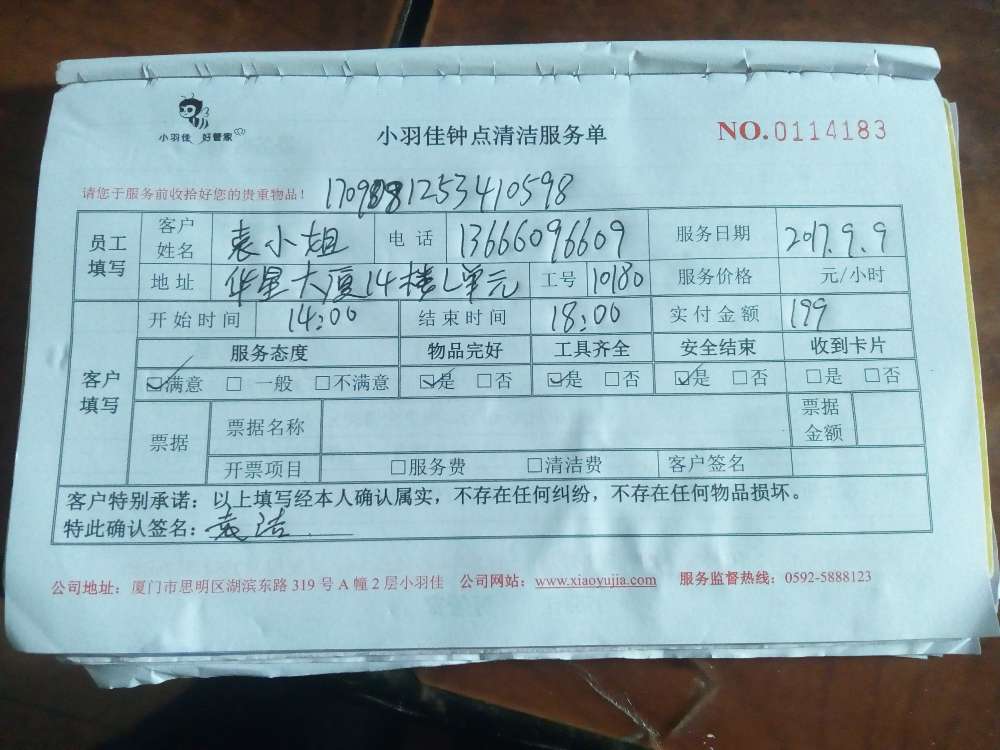 小羽佳 好管家
小羽佳钟点清洁服务单
NO.0114183
请您于服务前收拾好您的贵重物品！
员工填写 客户姓名 袁小姐 电话 13666096609 服务日期 2017.9.9
地址 华星大厦14楼L单元 工号 10180 服务价格 元/小时
客户填写 开始时间 14:00 结束时间 18:00 实付金额 199
服务态度 物品完好 工具齐全 安全结束 收到卡片
☑满意 □一般 □不满意 ☑是 □否 ☑是 □否 ☑是 □否 □是 □否
票据 票据名称 票据金额
开票项目 □服务费 □清洁费 客户签名
客户特别承诺：以上填写经本人确认属实，不存在任何纠纷，不存在任何物品损坏。
特此确认签名：袁洁
公司地址：厦门市思明区湖滨东路 319 号 A 幢 2 层小羽佳 公司网站：www.xiaoyujia.com 服务监督热线：0592-5888123